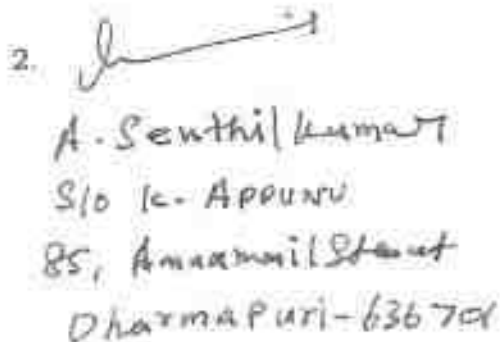 2.
A. Senthil kumar
S/o K. Appunu
85, Street
Dharmapuri - 636701